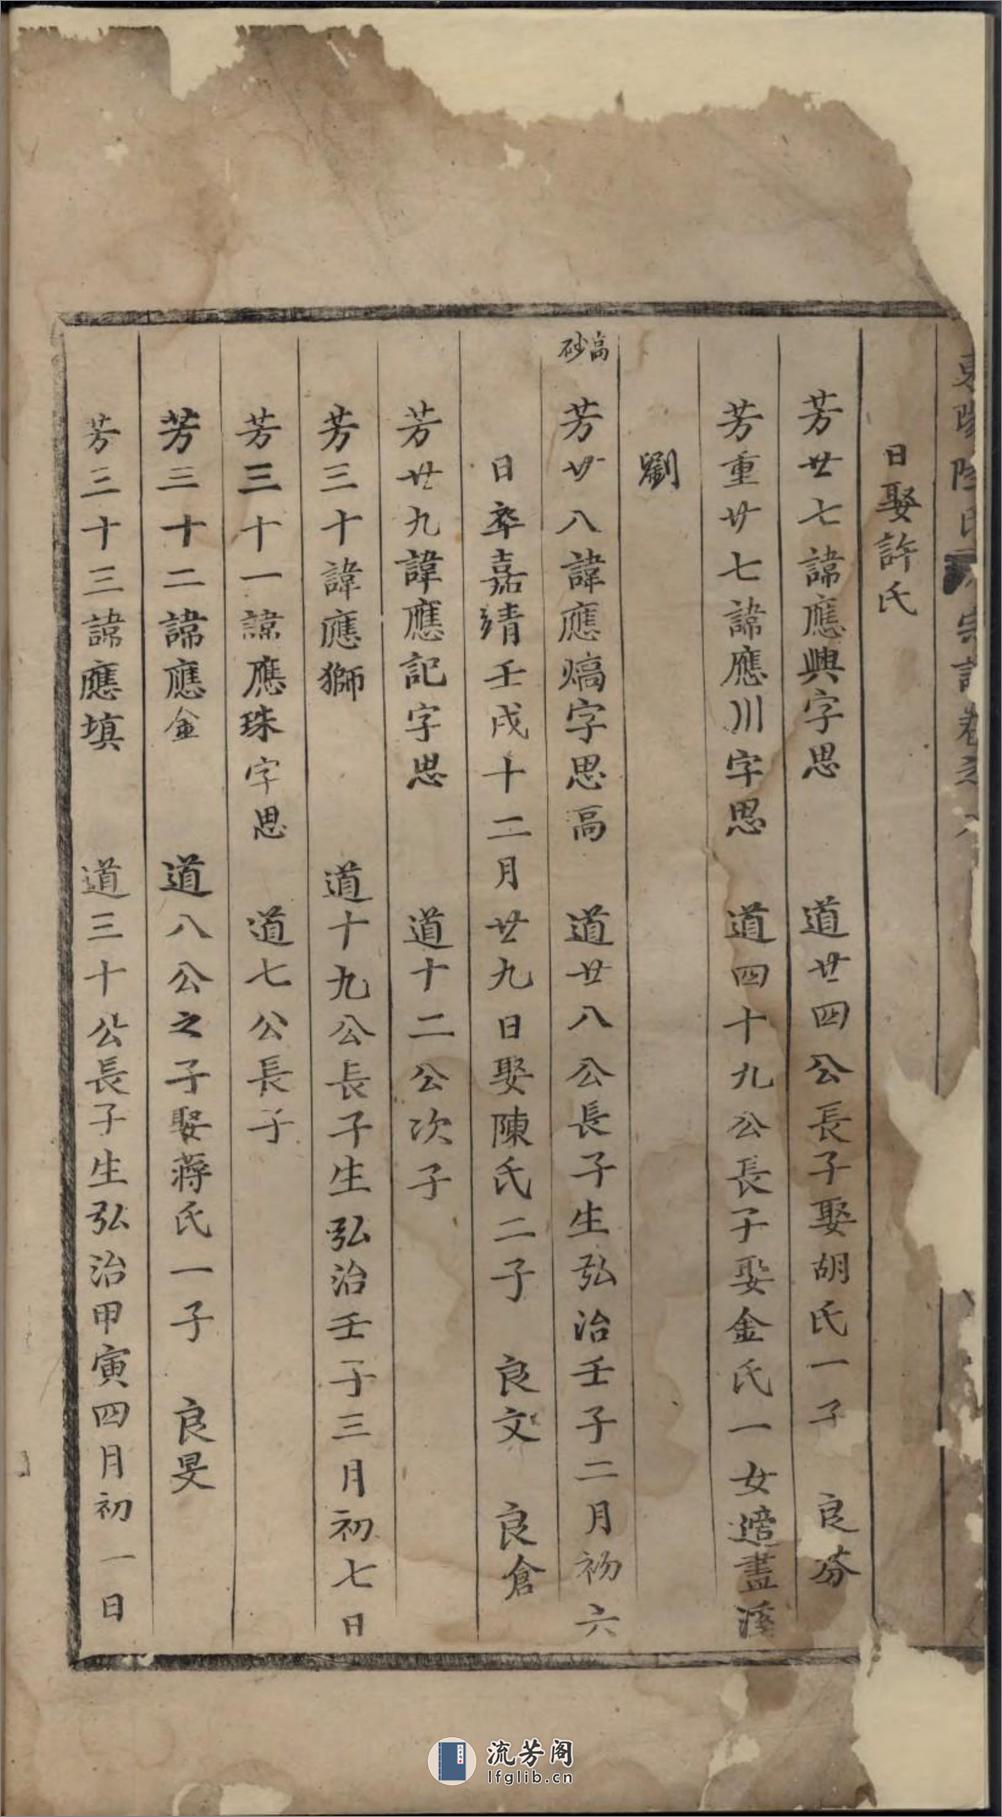 東陽陸氏宗譜卷之八
日娶許氏
芳廿七諱應興字思 道廿四公長子娶胡氏一子 良芬
芳重廿七諱應川字思 道四十九公長子娶金氏一女適畫溪
劉
高砂
芳廿八諱應熇字思高 道廿八公長子生弘治壬子二月初六
日卒嘉靖壬戌十二月廿九日娶陳氏二子 良文 良倉
芳廿九諱應記字思 道十二公次子
芳三十諱應獅 道十九公長子生弘治壬子三月初七日
芳三十一諱應珠字思 道七公長子
芳三十二諱應金 道八公之子娶蔣氏一子 良旻
芳三十三諱應填 道三十公長子生弘治甲寅四月初一日
流芳阁
lfglib.cn